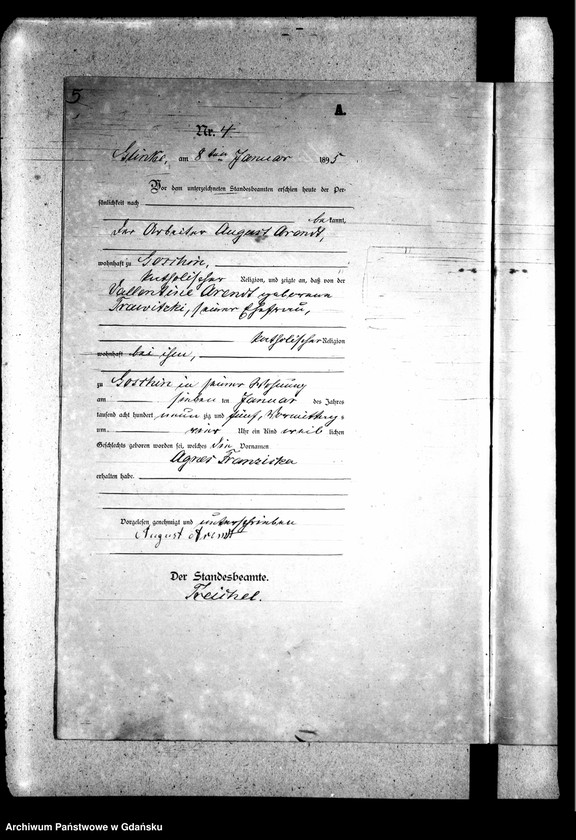 5
A.
Nr. 4.
Glinke, am 8 ten Januar 1895
Vor dem unterzeichneten Standesbeamten erschien heute der Per-
sönlichkeit nach
bekannt,
der Arbeiter August Arendt,
wohnhaft zu Goschin,
katholischer Religion, und zeigte an, daß von der
Vallentine Arendt geborene
Trawitzki, seiner Ehefrau,
katholischer Religion
wohnhaft bei ihm,
zu Goschin in seiner Wohnung
am sieben ten Januar des Jahres
tausend acht hundert neun zig und fünf, Vormittag-
um vier Uhr ein Kind weib lichen
Geschlechts geboren worden sei, welches die Vornamen
Agnes Franziska
erhalten habe.
Vorgelesen genehmigt und unterschrieben
August Arendt
Der Standesbeamte.
Archiwum Państwowe w Gdańsku